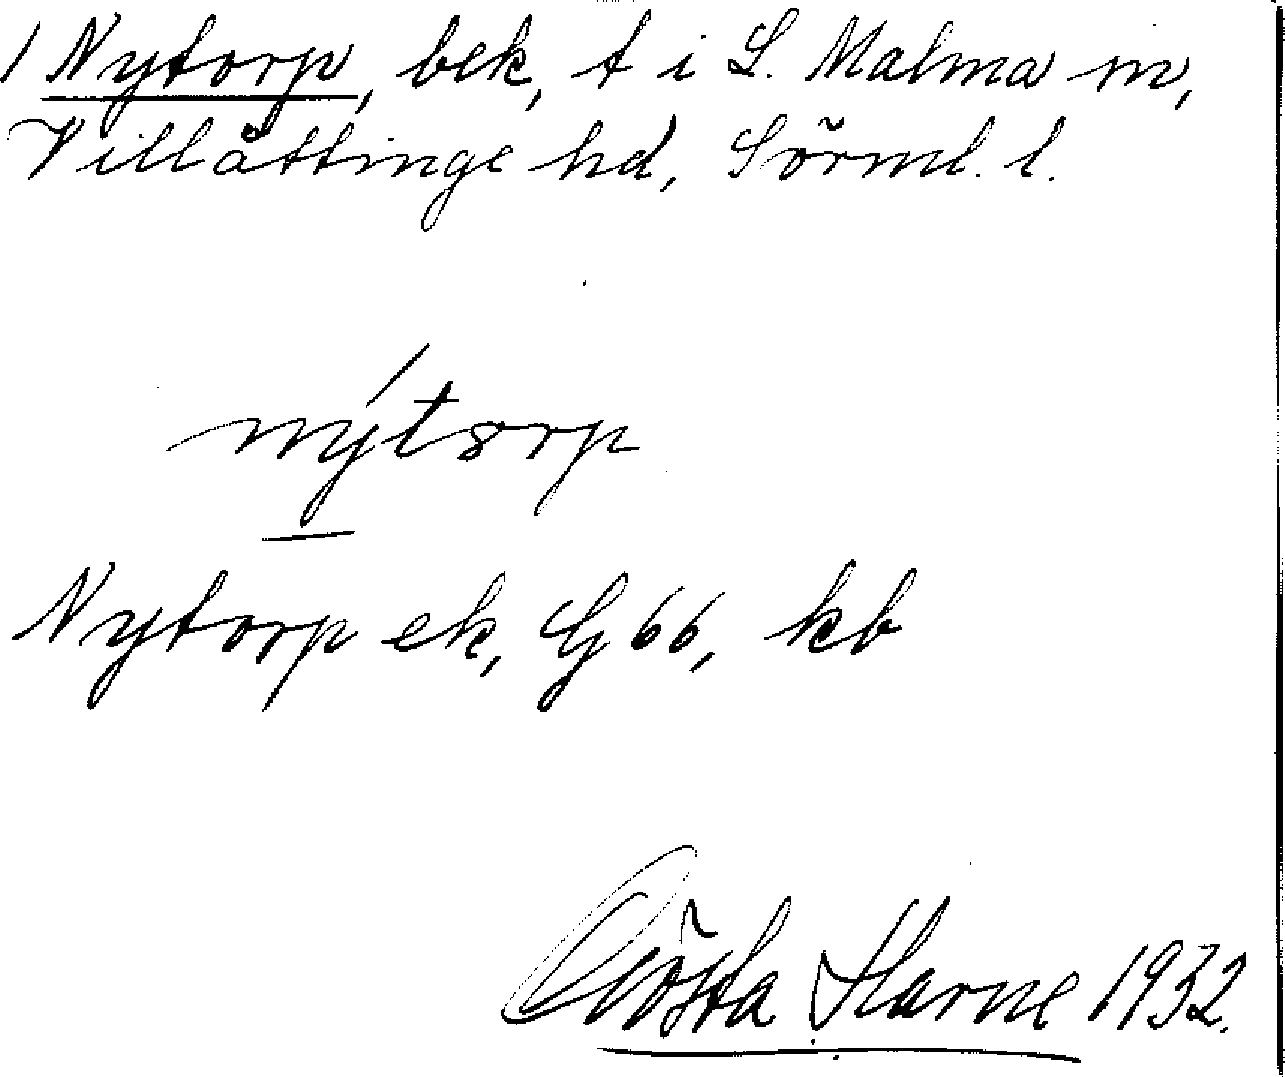 1 Nytorp, bek, t i L. Malma sn,
Villåttinge hd, Sörml. l.
nýtorp
Nytorp ek, G 66, kb
Gösta Harne 1932.